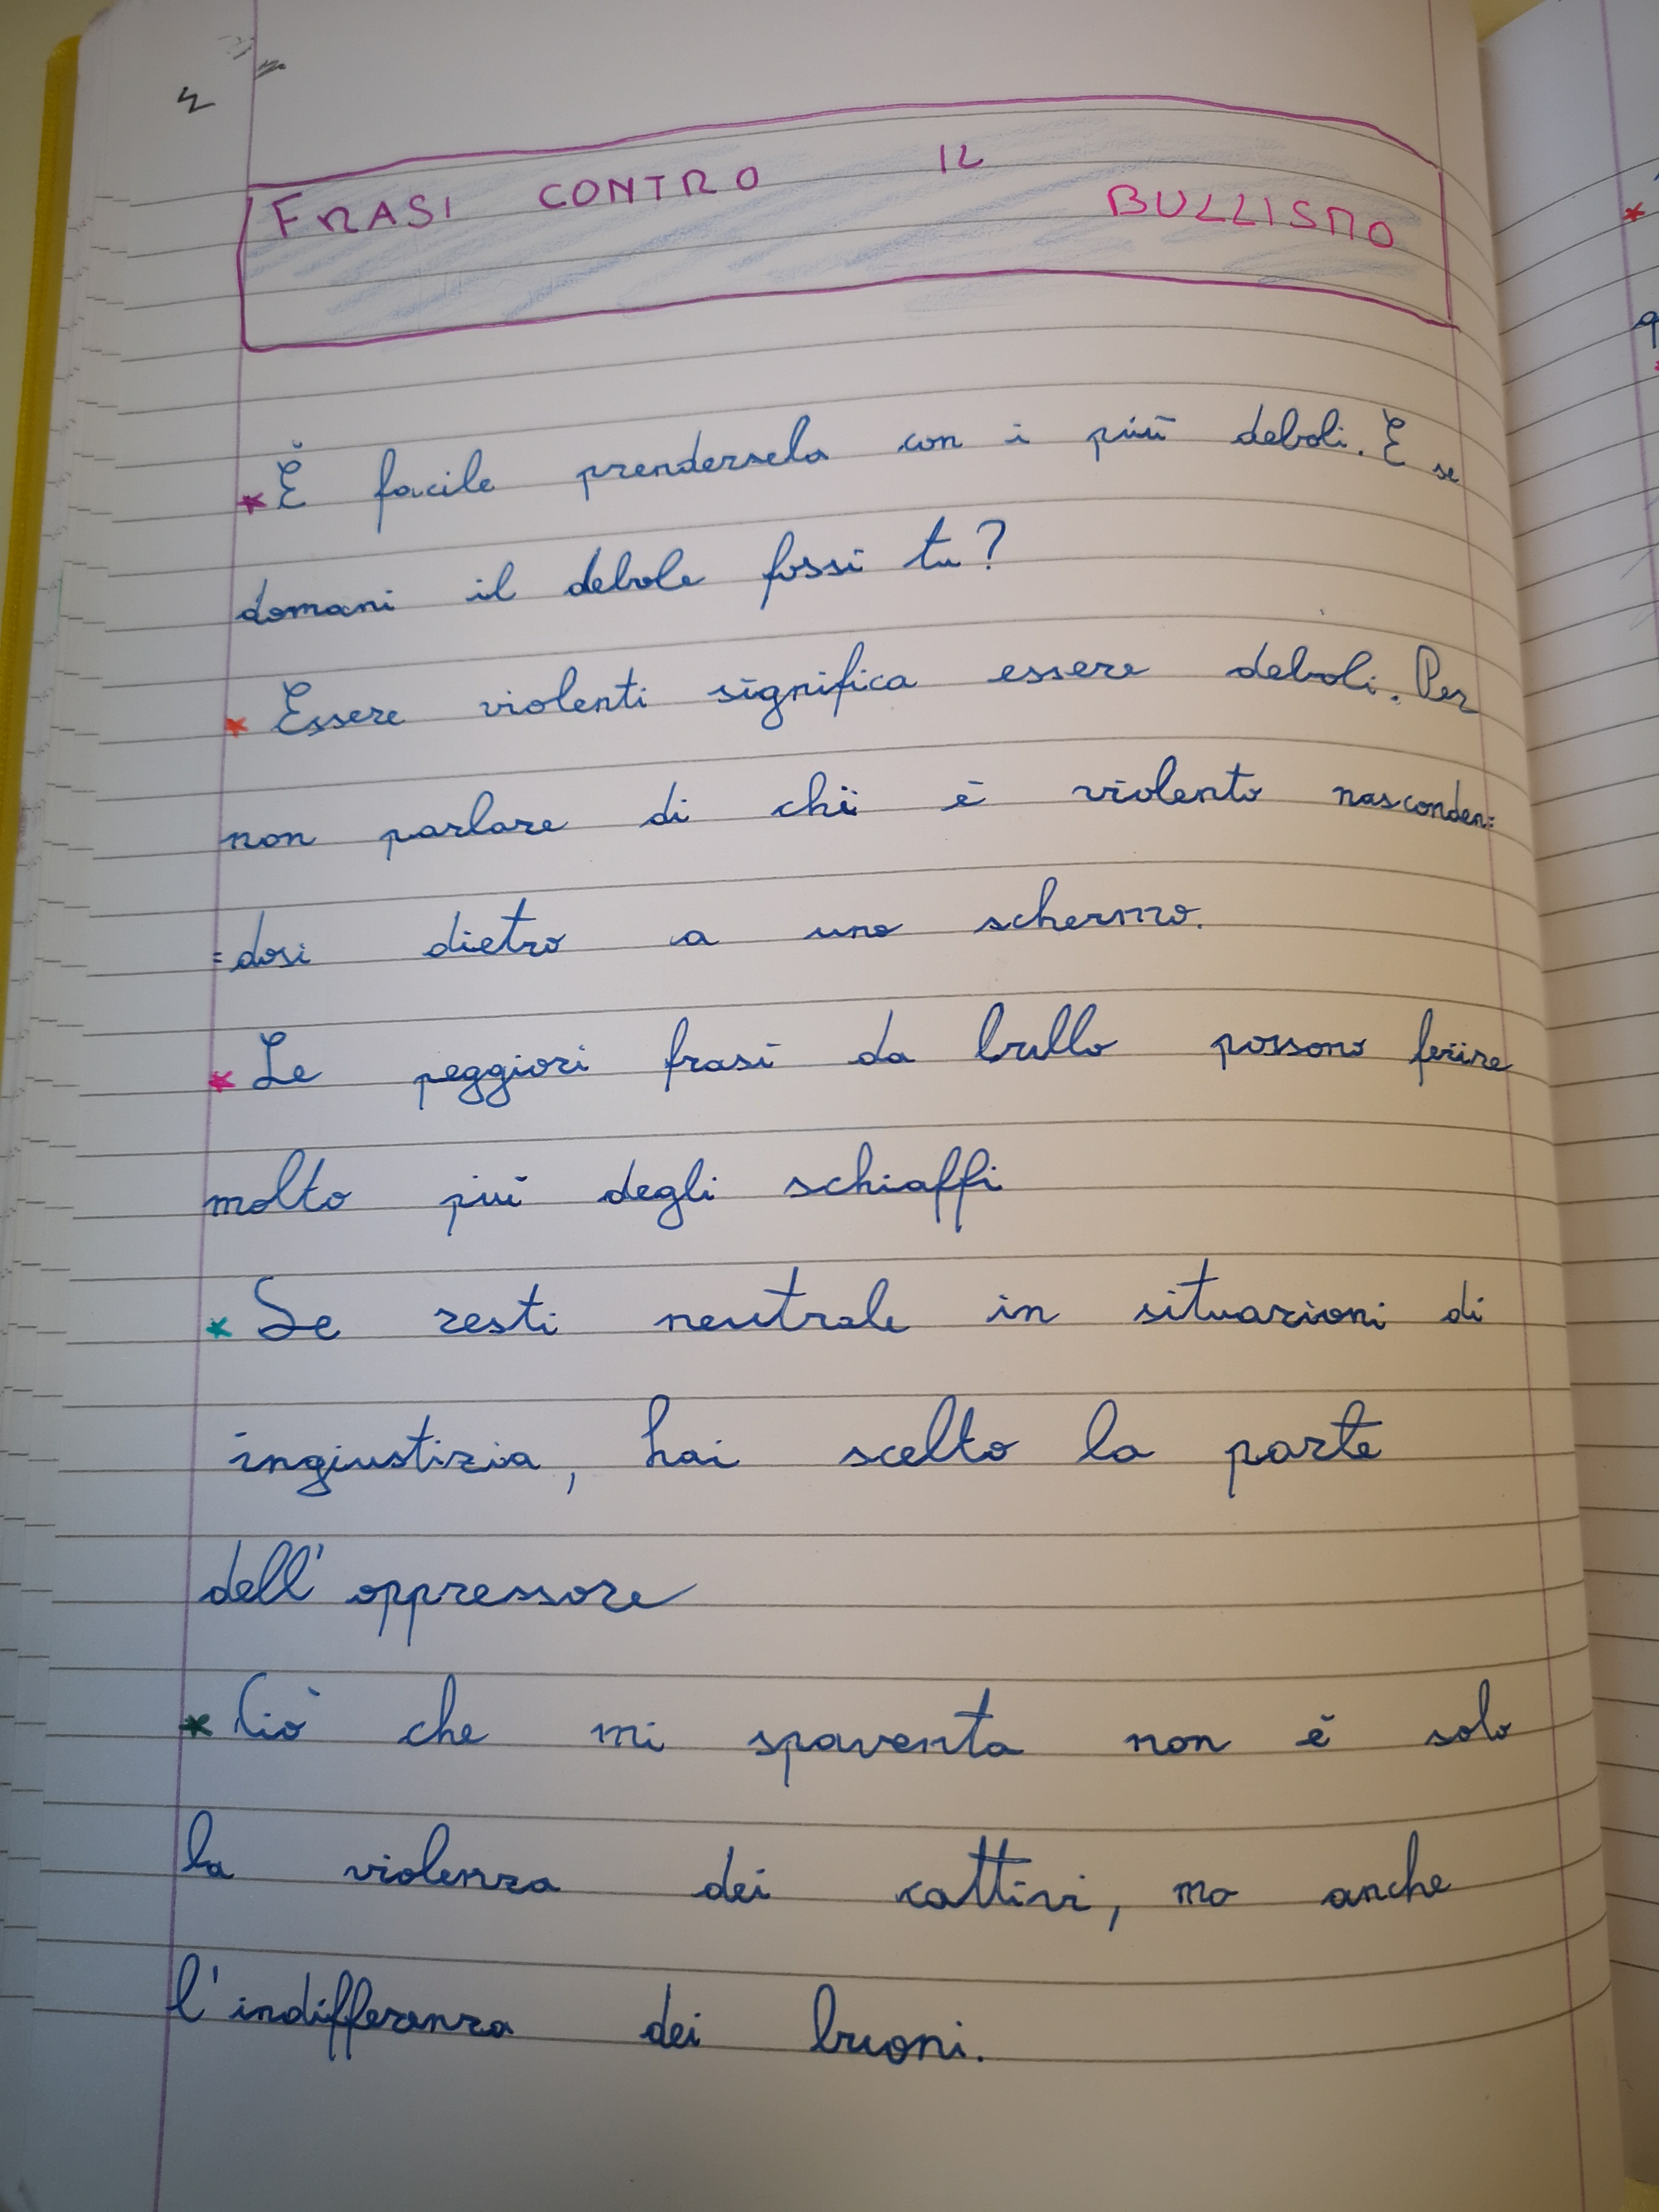 FRASI CONTRO IL BULLISMO
* È facile prendersela con i più deboli. E se
domani il debole fossi tu?
* Essere violenti significa essere deboli. Per
non parlare di chi è violento nasconden=
=dosi dietro a uno schermo.
* Le peggiori frasi da bullo possono ferire
molto più degli schiaffi
* Se resti neutrale in situazioni di
ingiustizia, hai scelto la parte
dell'oppressore
* Ciò che mi spaventa non è solo
la violenza dei cattivi, ma anche
l'indifferenza dei buoni.